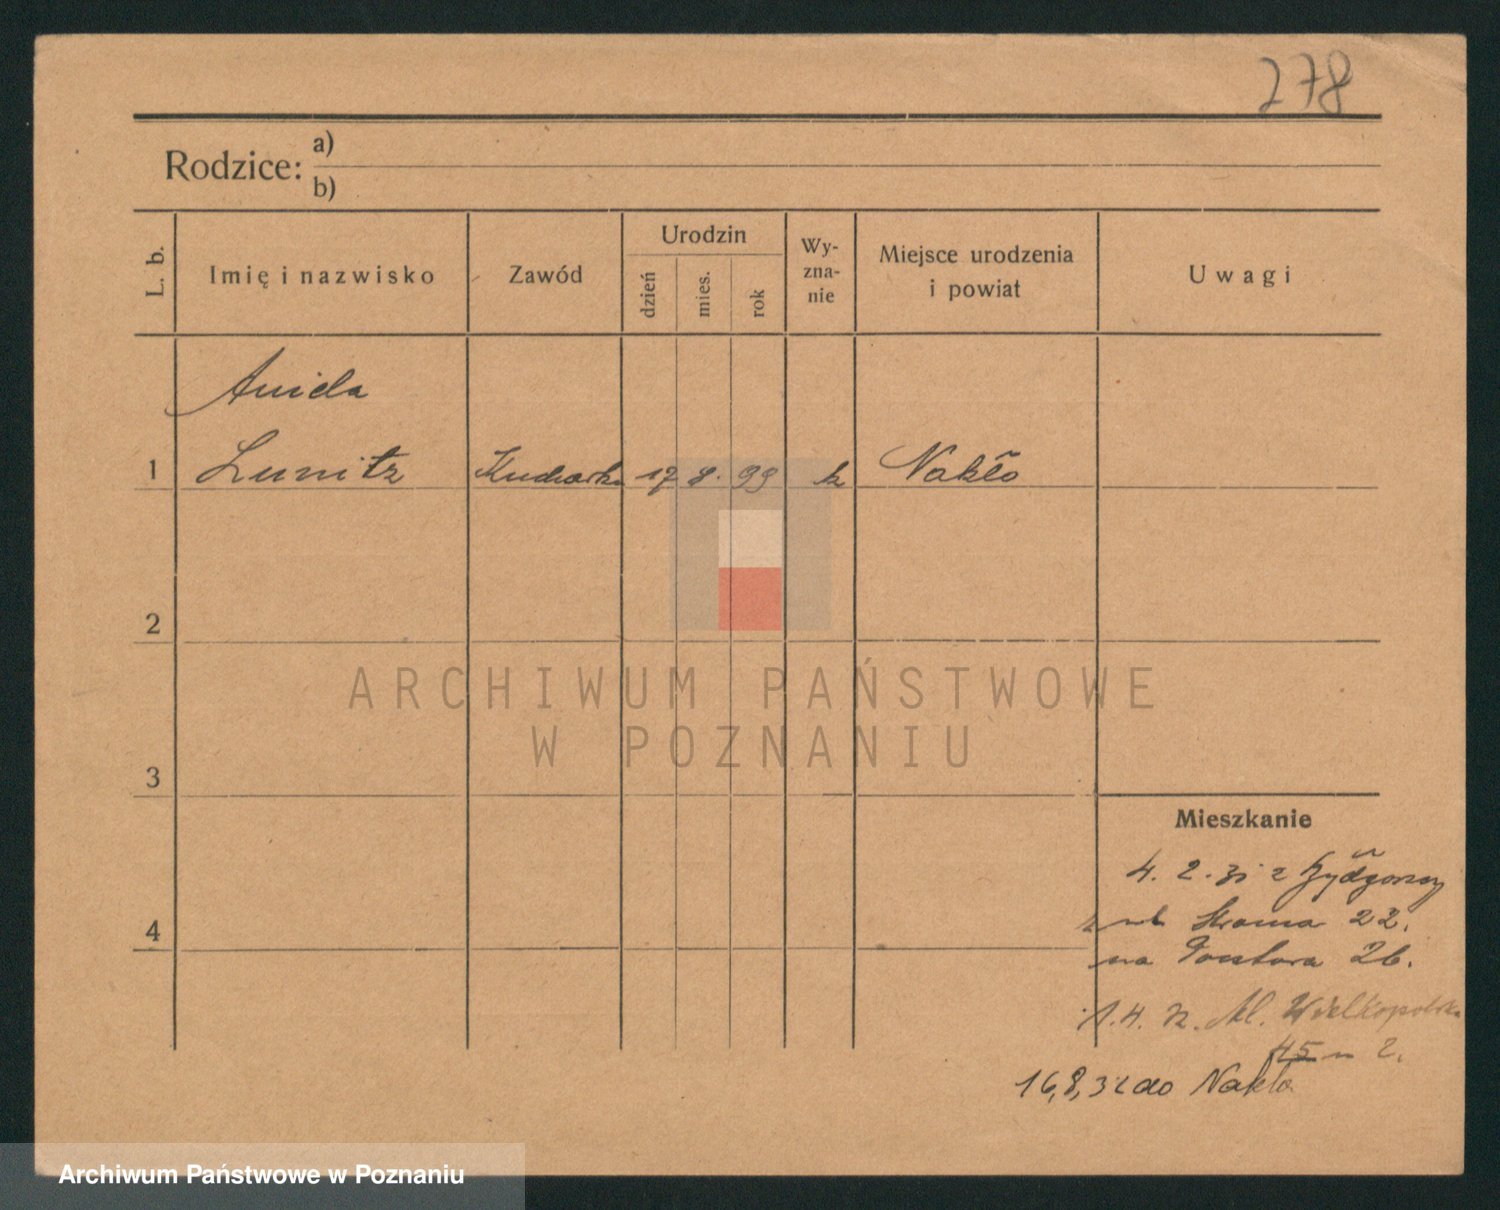 278
Rodzice: a)
b)
L. b.
Imię i nazwisko
Zawód
Urodzin
dzień
mies.
rok
Wy-
zna-
nie
Miejsce urodzenia
i powiat
Uwagi
Aniela
1 Lunitz Kucharka 17 8. 99 k Nakło
2
ARCHIWUM PAŃSTWOWE
W POZNANIU
3
Mieszkanie
4. 2. 31 z Bydgoszczy
4
ul Stroma 22.
na 26.
1.4. Al. Wielkopolska
45 m 2.
16,8,32 do Nakła
Archiwum Państwowe w Poznaniu